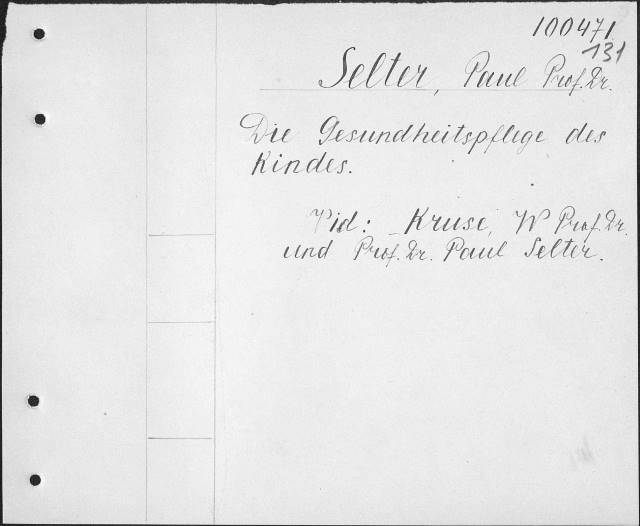 100471
131
Selter, Paul Prof. Dr.
Die Gesundheitspflege des
Kindes.
Vid: Kruse, W Prof. Dr.
und Prof. Dr. Paul Selter.